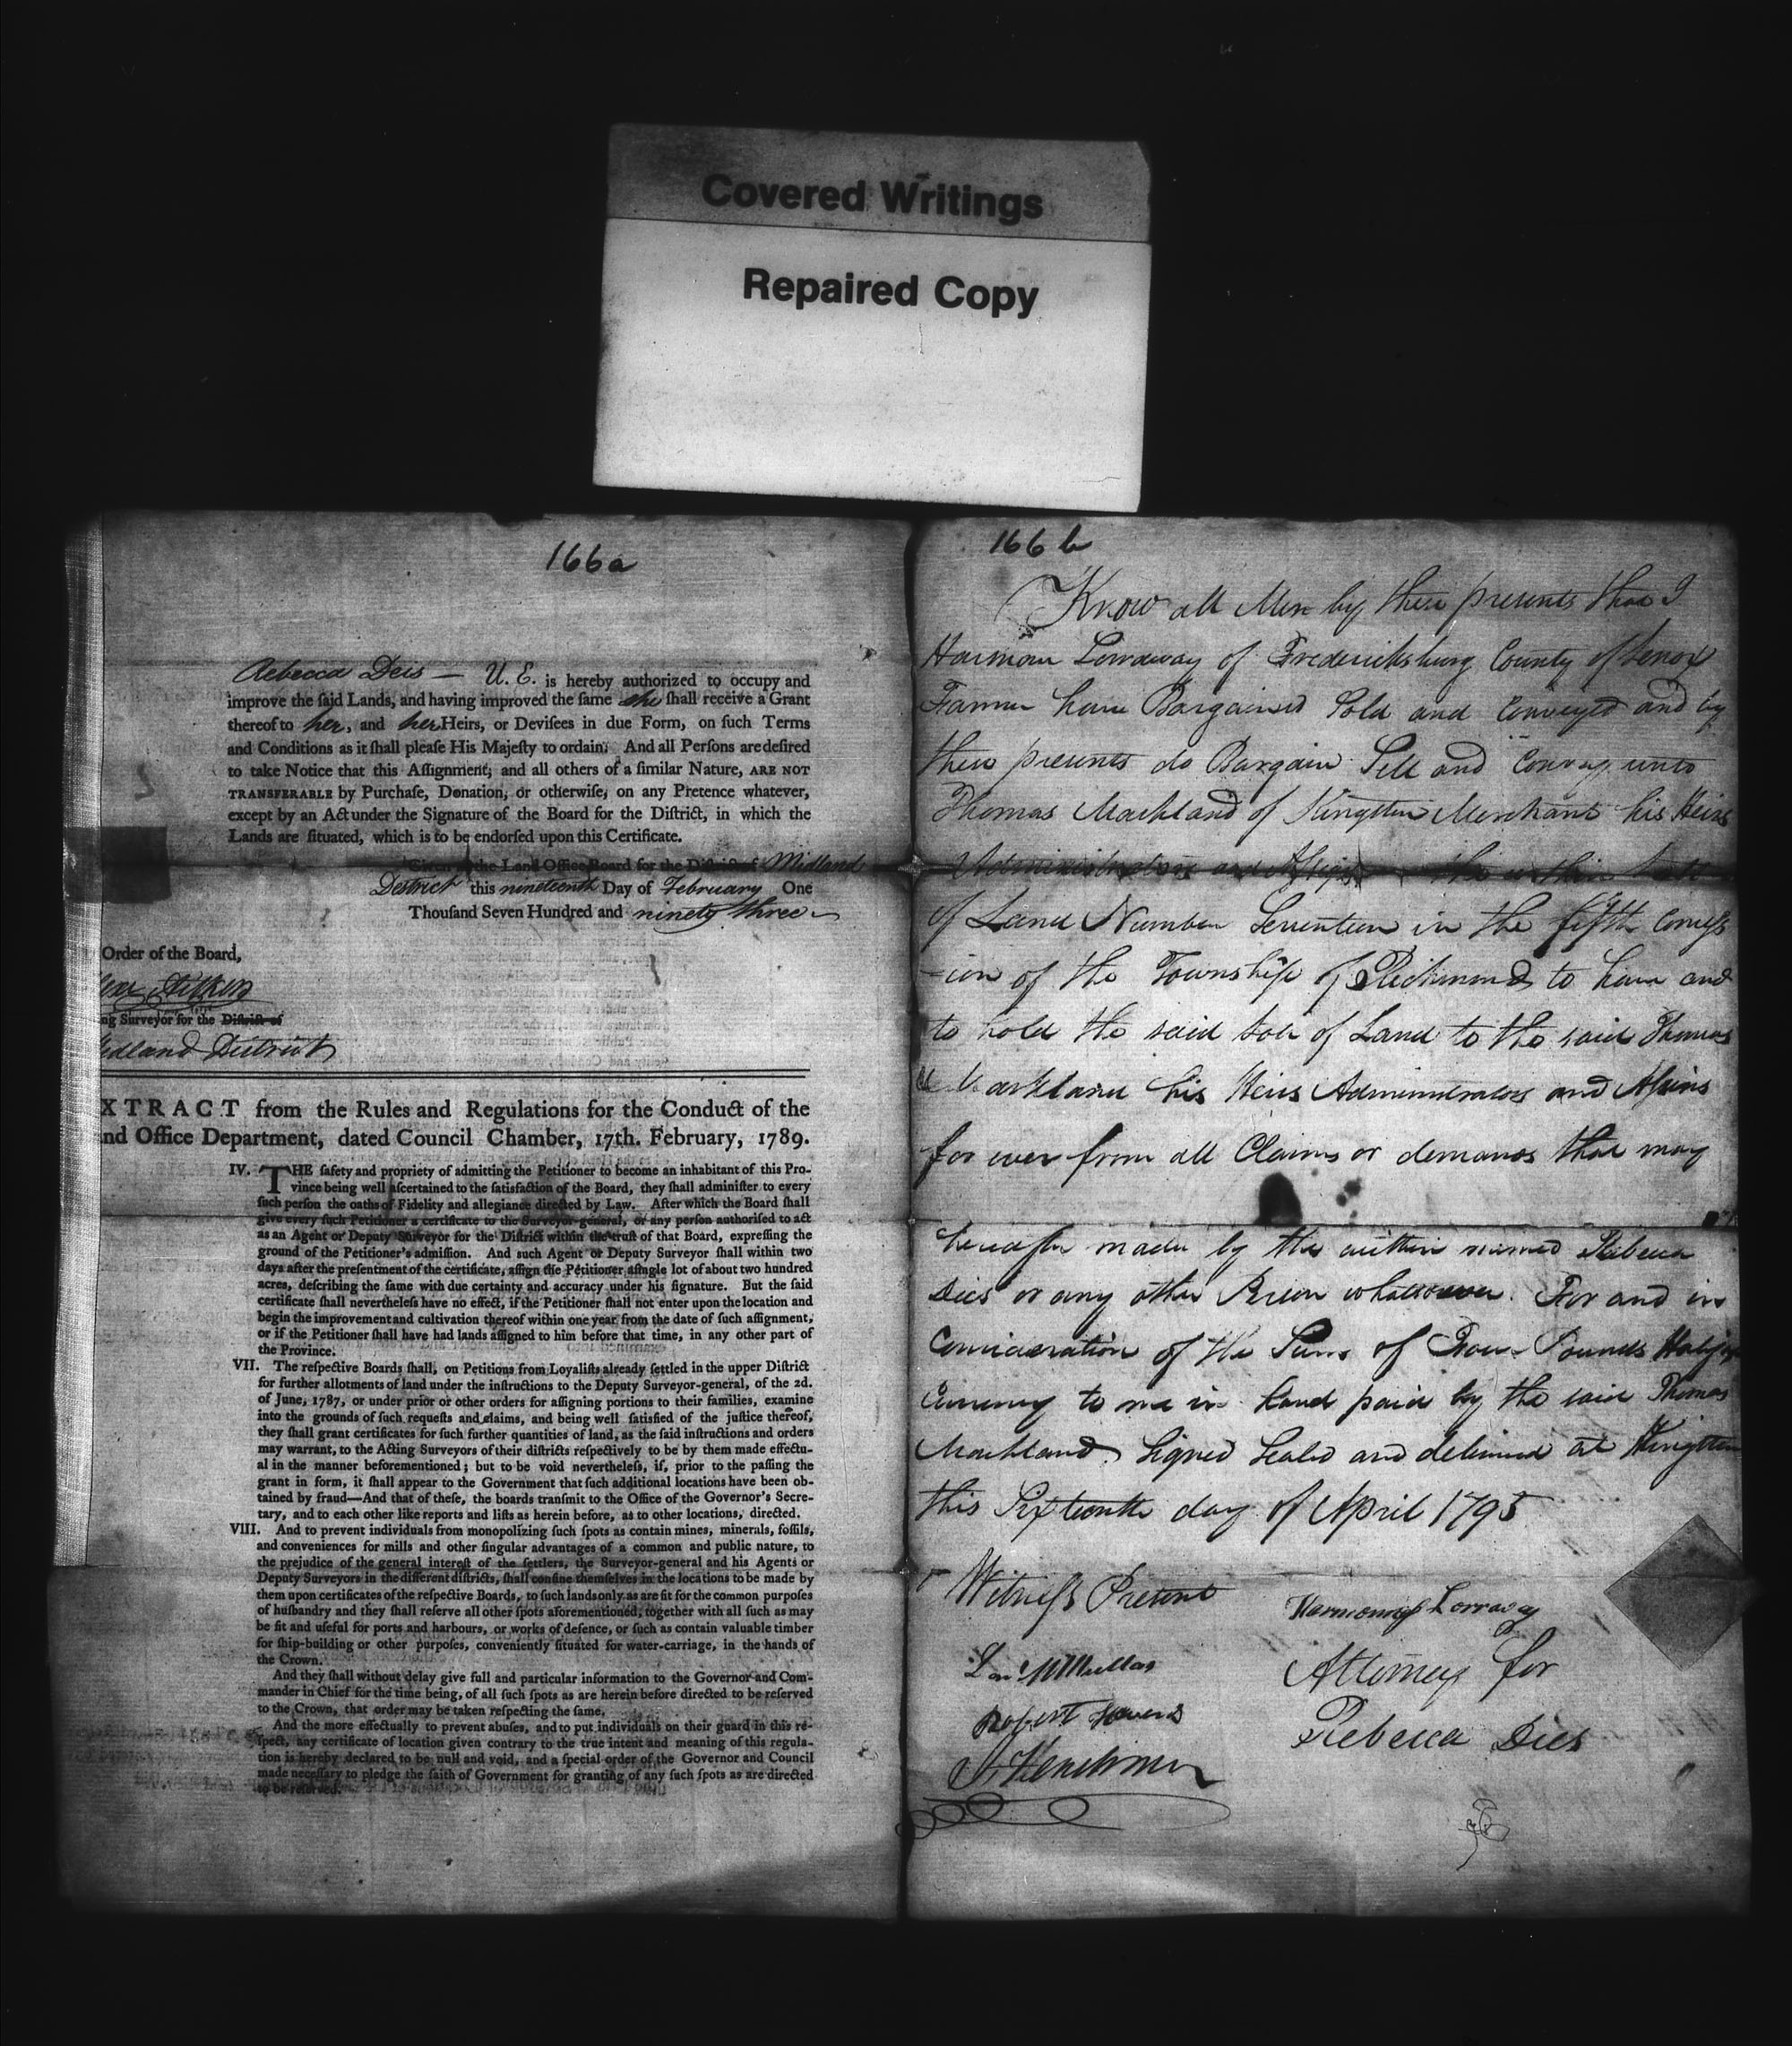 Covered Writings
Repaired Copy
166a
Rebecca Deis — U. E. is hereby authorized to occupy and
improve the ſaid Lands, and having improved the ſame she ſhall receive a Grant
thereof to her, and her Heirs, or Deviſees in due Form, on ſuch Terms
and Conditions as it ſhall pleaſe His Majeſty to ordain: And all Perſons are deſired
to take Notice that this Aſſignment, and all others of a ſimilar Nature, ARE NOT
TRANSFERABLE by Purchaſe, Donation, or otherwiſe, on any Pretence whatever,
except by an Act under the Signature of the Board for the Diſtrict, in which the
Lands are ſituated, which is to be endorſed upon this Certificate.
Given at the Land Office Board for the Diſtrict of Midland
District this nineteenth Day of February One
Thouſand Seven Hundred and ninety three
Order of the Board,
Aitken
ng Surveyor for the Diſtrict of
idland District
XTRACT from the Rules and Regulations for the Conduct of the
nd Office Department, dated Council Chamber, 17th. February, 1789.
IV. THE ſafety and propriety of admitting the Petitioner to become an inhabitant of this Pro-
vince being well aſcertained to the ſatisfaction of the Board, they ſhall adminiſter to every
ſuch perſon the oaths of Fidelity and allegiance directed by Law. After which the Board ſhall
give every ſuch Petitioner a certificate to the Surveyor-general, or any perſon authoriſed to act
as an Agent or Deputy Surveyor for the Diſtrict within the truſt of that Board, expreſſing the
ground of the Petitioner's admiſſion. And ſuch Agent or Deputy Surveyor ſhall within two
days after the preſentment of the certificate, aſſign the Petitioner a ſingle lot of about two hundred
acres, deſcribing the ſame with due certainty and accuracy under his ſignature. But the ſaid
certificate ſhall nevertheleſs have no effect, if the Petitioner ſhall not enter upon the location and
begin the improvement and cultivation thereof within one year from the date of ſuch aſſignment,
or if the Petitioner ſhall have had lands aſſigned to him before that time, in any other part of
the Province.
VII. The reſpective Boards ſhall, on Petitions from Loyaliſts already ſettled in the upper Diſtrict
for further allotments of land under the inſtructions to the Deputy Surveyor-general, of the 2d.
of June, 1787, or under prior or other orders for aſſigning portions to their families, examine
into the grounds of ſuch requeſts and claims, and being well ſatisfied of the juſtice thereof,
they ſhall grant certificates for ſuch further quantities of land, as the ſaid inſtructions and orders
may warrant, to the Acting Surveyors of their diſtricts reſpectively to be by them made effectu-
al in the manner beforementioned; but to be void nevertheleſs, if, prior to the paſſing the
grant in form, it ſhall appear to the Government that ſuch additional locations have been ob-
tained by fraud—And that of theſe, the boards tranſmit to the Office of the Governor's Secre-
tary, and to each other like reports and liſts as herein before, as to other locations, directed.
VIII. And to prevent individuals from monopolizing ſuch ſpots as contain mines, minerals, foſſils,
and conveniences for mills and other ſingular advantages of a common and public nature, to
the prejudice of the general intereſt of the ſettlers, the Surveyor-general and his Agents or
Deputy Surveyors in the different diſtricts, ſhall confine themſelves in the locations to be made by
them upon certificates of the reſpective Boards, to ſuch lands only as are fit for the common purpoſes
of huſbandry and they ſhall reſerve all other ſpots aforementioned, together with all ſuch as may
be fit and uſeful for ports and harbours, or works of defence, or ſuch as contain valuable timber
for ſhip-building or other purpoſes, conveniently ſituated for water-carriage, in the hands of
the Crown.
And they ſhall without delay give full and particular information to the Governor and Com-
mander in Chief for the time being, of all ſuch ſpots as are herein before directed to be reſerved
to the Crown, that order may be taken reſpecting the ſame.
And the more effectually to prevent abuſes, and to put individuals on their guard in this re-
ſpect, any certificate of location given contrary to the true intent and meaning of this regula-
tion is hereby declared to be null and void, and a ſpecial order of the Governor and Council
made neceſſary to pledge the faith of Government for granting of any ſuch ſpots as are directed
to be reſerved.
166 b
Know all Men by these presents that I
Harman Lorraway of Fredericksburg County of Lenox
Farmer have Bargained Sold and Conveyed and by
these presents do Bargain Sell and Convey unto
Thomas Markland of Kingston Merchant his Heirs
Administrators and Aſsigns the within Lott
of Land Number Seventeen in the fifth Conceſs
-ion of the Township of Richmond to have and
to hold the said Lott of Land to the said Thomas
Markland his Heirs Administrators and Aſsigns
for ever from all Claims or demands that may
hereafter made by the within named Rebecca
Dies or any other Person whatsoever. For and in
Consideration of the Sum of Four Pounds Halifax
Currency to me in hand paid by the said Thomas
Markland. Signed Sealed and delivered at Kingston
this Sixteenth day of April 1795
Witneſs Present
Harmonus Lorraway
McMullen
Attorney for
Robert
Rebecca Dies
J Henchman